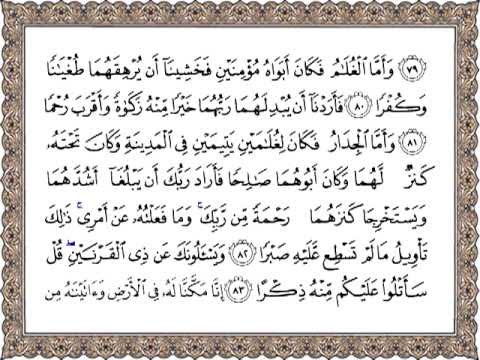 ﴿٧٩﴾ وَأَمَّا ٱلْغُلَـٰمُ فَكَانَ أَبَوَاهُ مُؤْمِنَيْنِ فَخَشِينَآ أَن يُرْهِقَهُمَا طُغْيَـٰنًا
وَكُفْرًا ﴿٨٠﴾ فَأَرَدْنَآ أَن يُبْدِلَهُمَا رَبُّهُمَا خَيْرًا مِّنْهُ زَكَوٰةً وَأَقْرَبَ رُحْمًا
﴿٨١﴾ وَأَمَّا ٱلْجِدَارُ فَكَانَ لِغُلَـٰمَيْنِ يَتِيمَيْنِ فِى ٱلْمَدِينَةِ وَكَانَ تَحْتَهُۥ
كَنزٌ لَّهُمَا وَكَانَ أَبُوهُمَا صَـٰلِحًا فَأَرَادَ رَبُّكَ أَن يَبْلُغَآ أَشُدَّهُمَا
وَيَسْتَخْرِجَا كَنزَهُمَا رَحْمَةً مِّن رَّبِّكَ ۚ وَمَا فَعَلْتُهُۥ عَنْ أَمْرِى ۚ ذَٰلِكَ
تَأْوِيلُ مَا لَمْ تَسْطِع عَّلَيْهِ صَبْرًا ﴿٨٢﴾ وَيَسْـَٔلُونَكَ عَن ذِى ٱلْقَرْنَيْنِ ۖ قُلْ
سَأَتْلُوا۟ عَلَيْكُم مِّنْهُ ذِكْرًا ﴿٨٣﴾ إِنَّا مَكَّنَّا لَهُۥ فِى ٱلْأَرْضِ وَءَاتَيْنَـٰهُ مِن